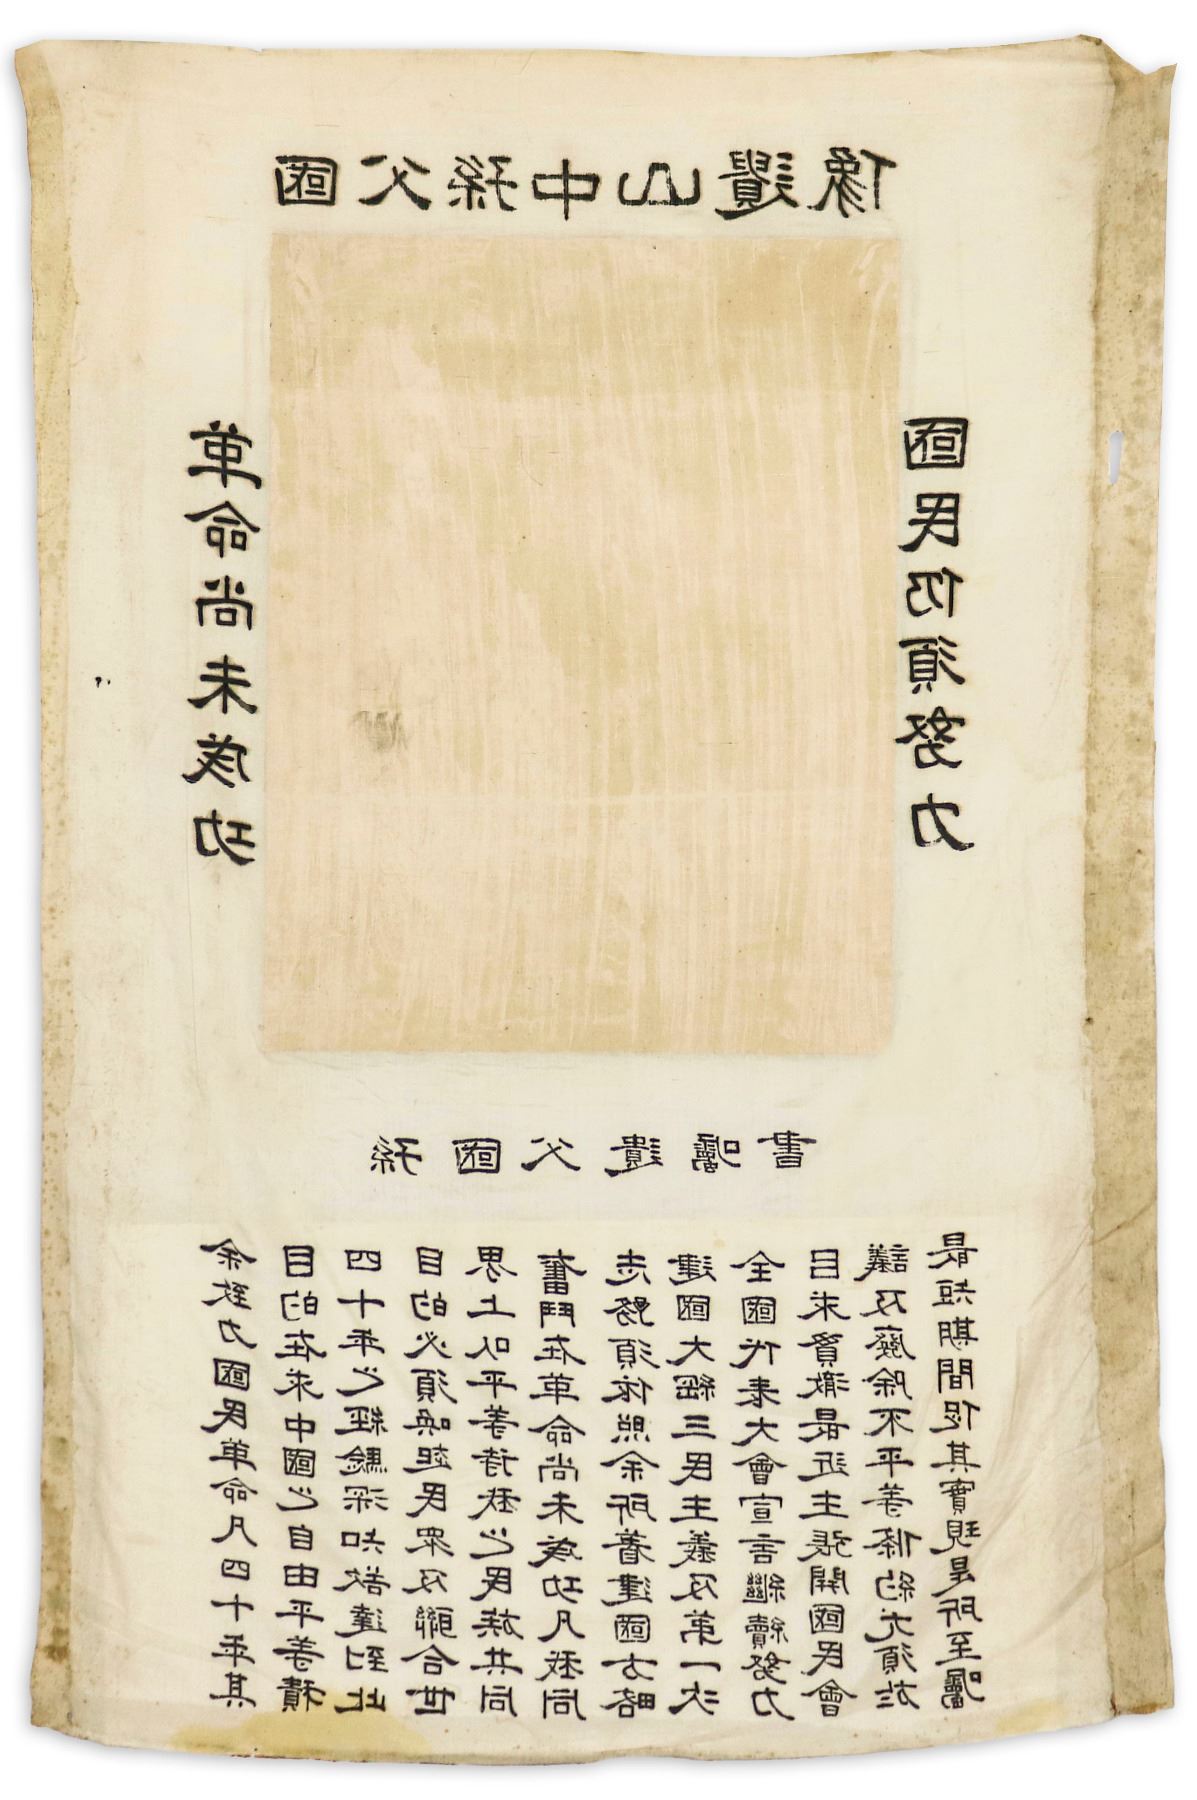 國父孫中山遺像
革命尚未成功
國民仍須努力
孫國父遺囑書
余致力國民革命凡四十年其
目的在求中國之自由平等積
四十年之經驗深知欲達到此
目的必須喚起民眾及聯合世
界上以平等待我之民族共同
奮鬥在革命尚未成功凡我同
志務須依照余所著建國方略
建國大綱三民主義及第一次
全國代表大會宣言繼續努力
目求貫澈最近主張開國民會
議及廢除不平等條約尤須於
最短期間促其實現是所至囑